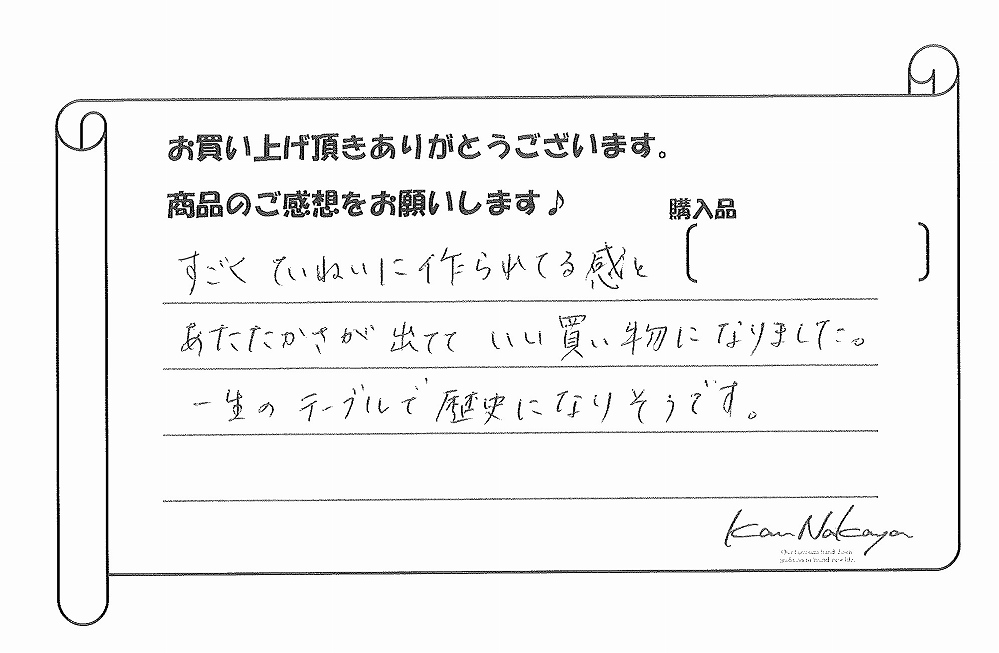 お買い上げ頂きありがとうございます。
商品のご感想をお願いします♪
購入品
すごく ていねいに作られてる感と
あたたかさが 出てて いい買い物になりました。
一生の テーブルで歴史になりそうです。
Kan Nakaya